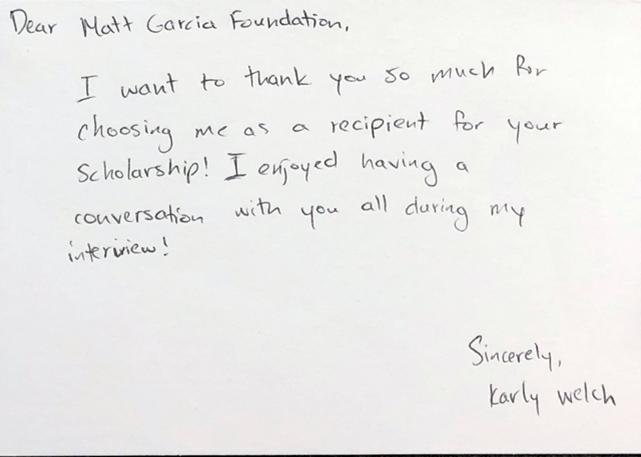 Dear Matt Garcia Foundation,
I want to thank you so much for
choosing me as a recipient for your
Scholarship! I enjoyed having a
conversation with you all during my
interview!
Sincerely,
Karly Welch